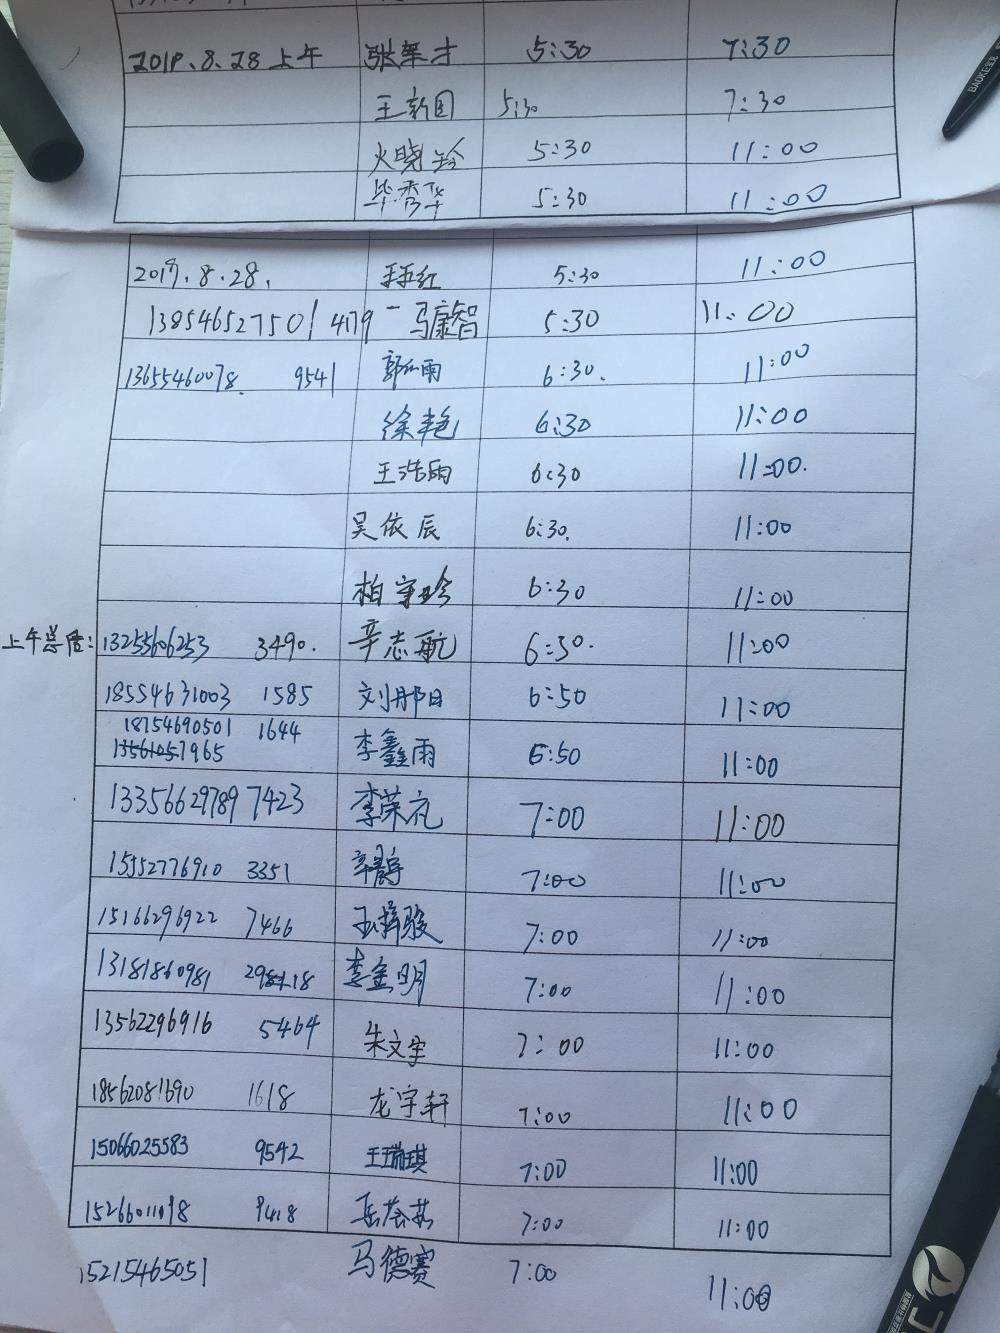 2018.8.28上午 张军才 5:30 7:30
王新国 5:30 7:30
火晓玲 5:30 11:00
毕秀华 5:30 11:00
2018.8.28. 王红 5:30 11:00
13854652750 1479 马康智 5:30 11:00
13655460078. 9541 郭雨 6:30. 11:00
徐艳 6:30 11:00
王浩雨 6:30 11:00.
吴依辰 6:30. 11:00
柏守玲 6:30 11:00
上午总店: 13255606253 3490. 辛志航 6:30. 11:00
18554631003 1585 刘邢日 6:50 11:00
18754690501 1644
13561057965 李鑫雨 6:50 11:00
13356629789 7423 李荣礼 7:00 11:00
15552776910 3351 辛 7:00 11:00
15166296922 7466 骏 7:00 11:00
13181860981 李金明 7:00 11:00
13562296916 5464 朱文宇 7:00 11:00
18562081690 1618 龙宇轩 7:00 11:00
15066025583 9542 王瑞琪 7:00 11:00
15266011098 9418 7:00 11:00
15215465051 马德赛 7:00 11:00
BAOKE宝克